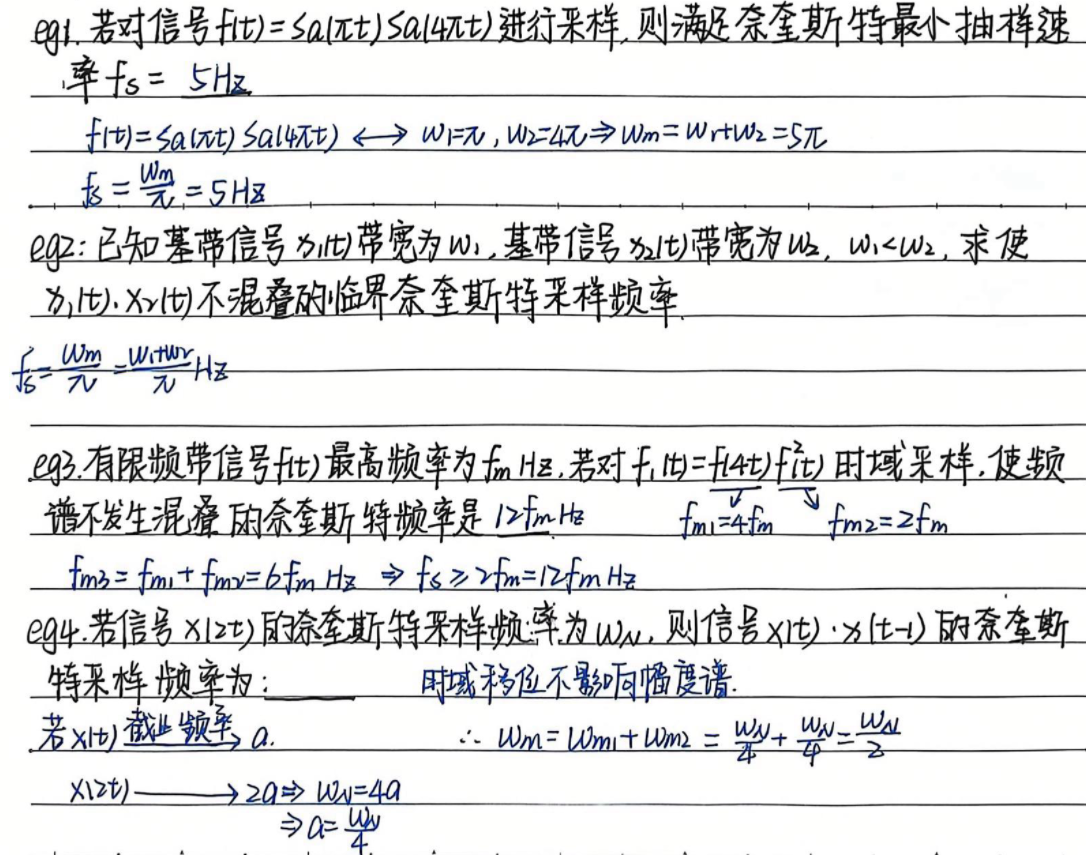 eg1. 若对信号f(t)=Sa(πt)Sa(4πt)进行采样,则满足奈奎斯特最小抽样速
率fs= 5Hz
f(t)=Sa(πt)Sa(4πt) ⟷ w1=π, w2=4π⇒wm=w1+w2=5π
fs=wm/π=5Hz
eg2:已知基带信号x1(t)带宽为w1,基带信号x2(t)带宽为w2, w1<w2,求使
x1(t)·x2(t)不混叠的临界奈奎斯特采样频率.
fs=wm/π=(w1+w2)/π Hz
eg3.有限频带信号f(t)最高频率为fm Hz,若对f1(t)=f(4t)f²(t)时域采样,使频
谱不发生混叠的奈奎斯特频率是 12fmHz
fm1=4fm fm2=2fm
fm3=fm1+fm2=6fm Hz ⇒ fs≥2fm=12fm Hz
eg4.若信号x(2t)的奈奎斯特采样频率为wN,则信号x(t)·x(t-1)的奈奎斯
特采样频率为:
时域移位不影响幅度谱.
若x(t) 截止频率→ a.
∴ wm=wm1+wm2=wN/4+wN/4=wN/2
x(2t)⟶2a⇒wN=4a
⇒a=wN/4